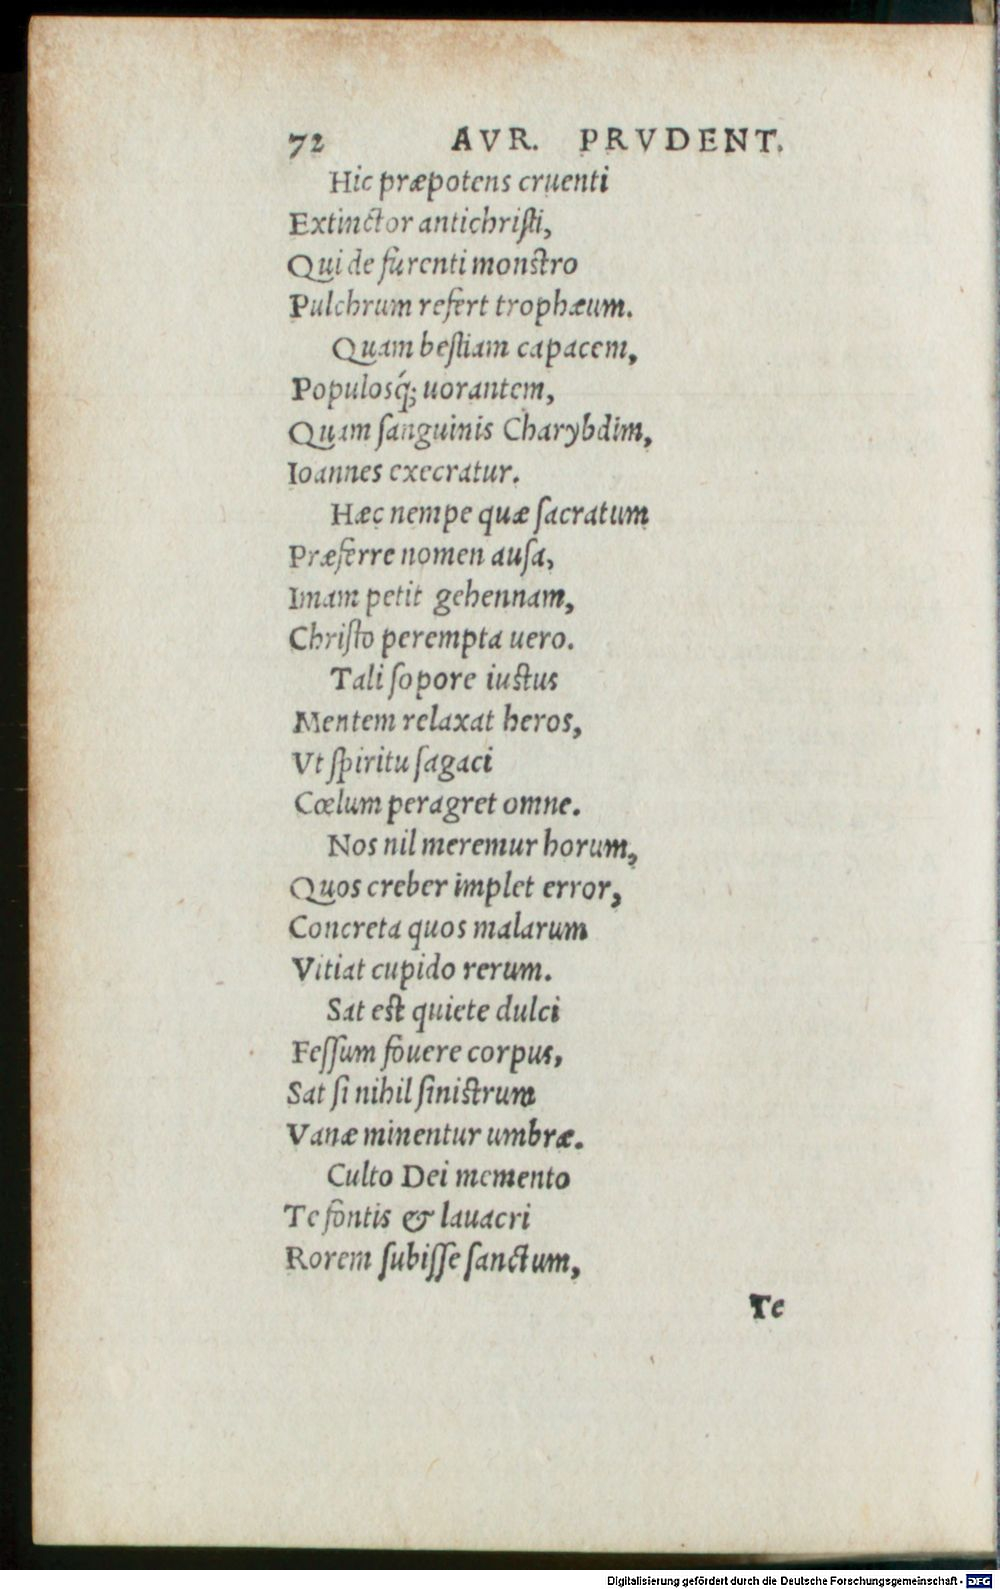 72 AVR. PRVDENT.
Hic præpotens cruenti
Extinctor antichriſti,
Qui de furenti monstro
Pulchrum refert trophæum.
Quam beſtiam capacem,
Populosq́; uorantem,
Quam ſanguinis Charybdim,
Ioannes execratur.
Hæc nempe quæ ſacratum
Præferre nomen auſa,
Imam petit gehennam,
Chriſto perempta uero.
Tali ſopore iustus
Mentem relaxat heros,
Vt ſpiritu ſagaci
Cœlum peragret omne.
Nos nil meremur horum,
Quos creber implet error,
Concreta quos malarum
Vitiat cupido rerum.
Sat est quiete dulci
Feſſum fouere corpus,
Sat ſi nihil ſinistrum
Vanæ minentur umbræ.
Culto Dei memento
Te fontis & lauacri
Rorem ſubiſſe ſanctum,
Te
Digitalisierung gefördert durch die Deutsche Forschungsgemeinschaft - DFG